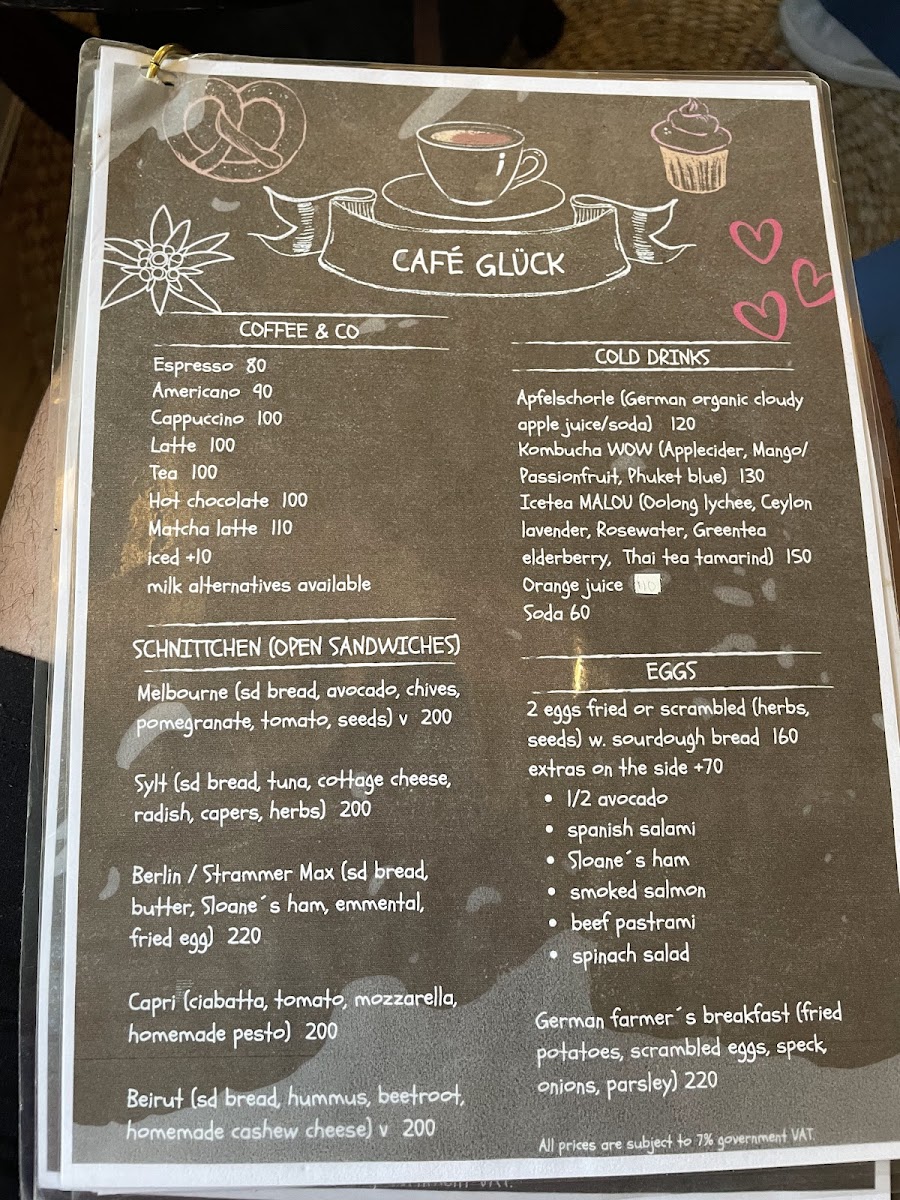 CAFÉ GLÜCK
COFFEE & CO
Espresso 80
Americano 90
Cappuccino 100
Latte 100
Tea 100
Hot chocolate 100
Matcha latte 110
iced +10
milk alternatives available
SCHNITTCHEN (OPEN SANDWICHES)
Melbourne (sd bread, avocado, chives,
pomegranate, tomato, seeds) v 200
Sylt (sd bread, tuna, cottage cheese,
radish, capers, herbs) 200
Berlin / Strammer Max (sd bread,
butter, Sloane´s ham, emmental,
fried egg) 220
Capri (ciabatta, tomato, mozzarella,
homemade pesto) 200
Beirut (sd bread, hummus, beetroot,
homemade cashew cheese) v 200
COLD DRINKS
Apfelschorle (German organic cloudy
apple juice/soda) 120
Kombucha WOW (Applecider, Mango/
Passionfruit, Phuket blue) 130
Icetea MALOU (Oolong lychee, Ceylon
lavender, Rosewater, Greentea
elderberry, Thai tea tamarind) 150
Orange juice
Soda 60
EGGS
2 eggs fried or scrambled (herbs,
seeds) w. sourdough bread 160
extras on the side +70
• 1/2 avocado
• spanish salami
• Sloane´s ham
• smoked salmon
• beef pastrami
• spinach salad
German farmer´s breakfast (fried
potatoes, scrambled eggs, speck,
onions, parsley) 220
All prices are subject to 7% government VAT.